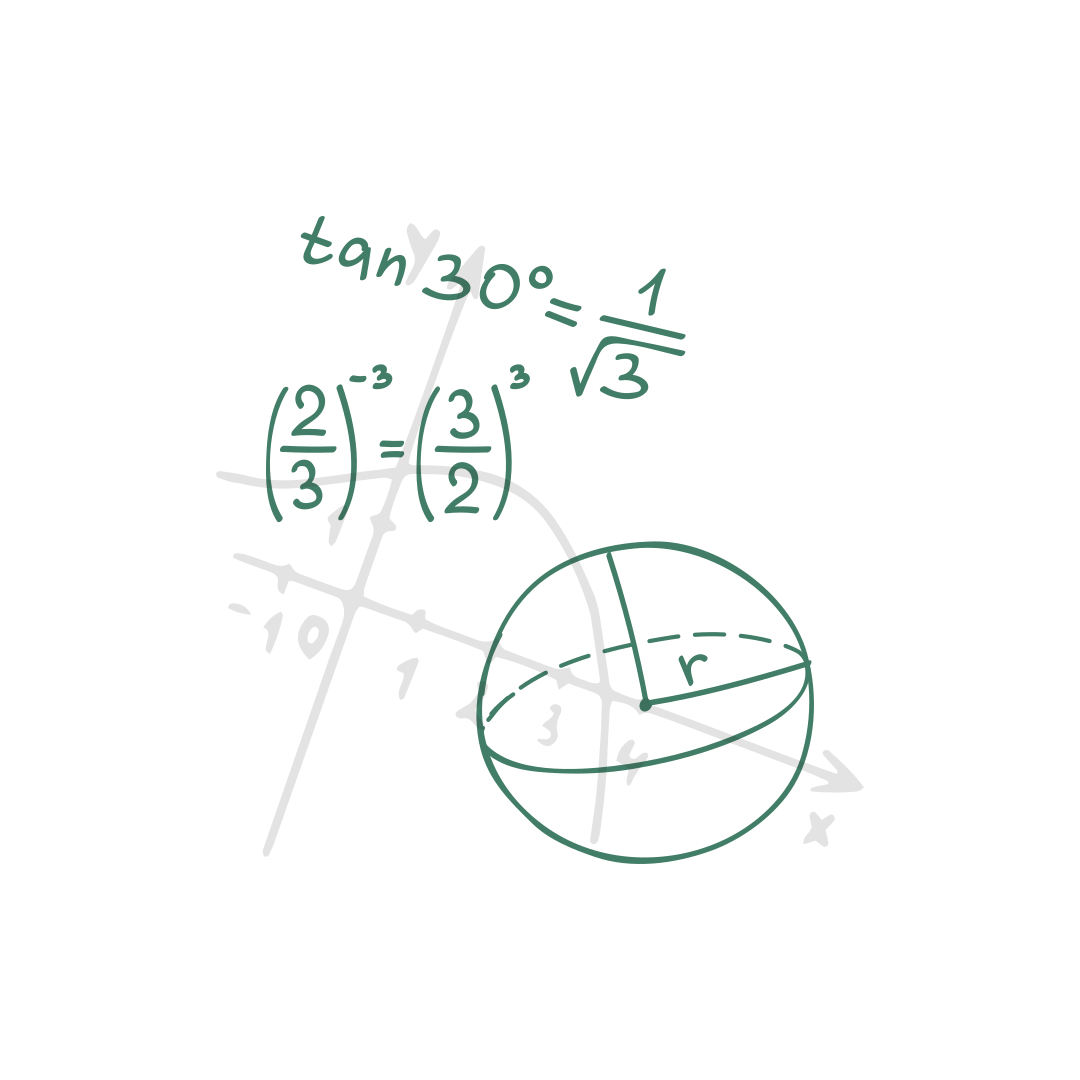 y
tan 30° = 1/√3
(2/3)⁻³ = (3/2)³
1
-1 0 1 3 4
r
x